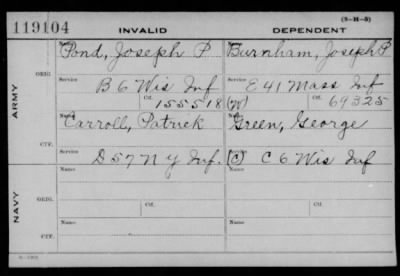 (3-H-5)
119104 INVALID DEPENDENT
Name Pond, Joseph P Burnham, Joseph P
ORIG.
Service B 6 Wis Inf Service E 41 Mass Inf
Ctf. 155518 (W) Ctf. 69325
ARMY
Name Carroll, Patrick Name Green, George
CTF.
Service D 57 N Y Inf. Service (C) C 6 Wis Inf
Name Name
ORIG.
Service Ctf. Service Ctf.
NAVY
Name Name
CTF.
Service Service